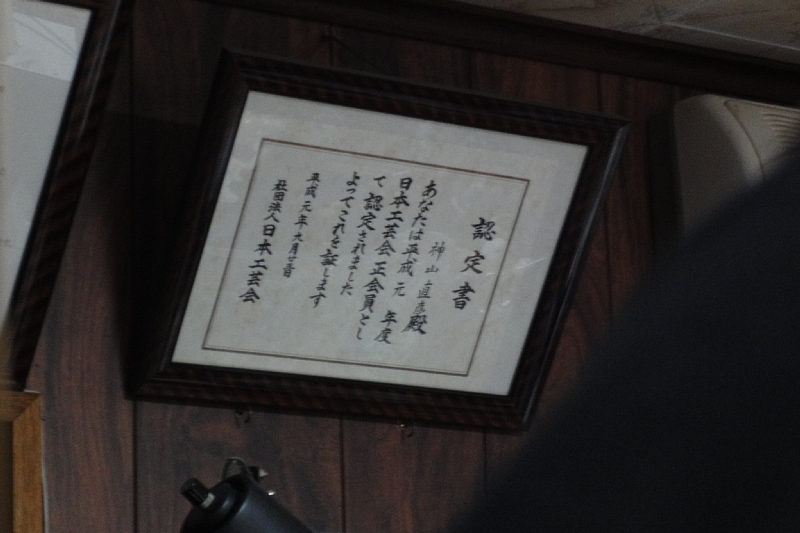 認定書
神山直彦殿
あなたは平成元年度
日本工芸会正会員とし
て認定されました
よってこれを証します
平成元年九月廿一日
社団法人日本工芸会